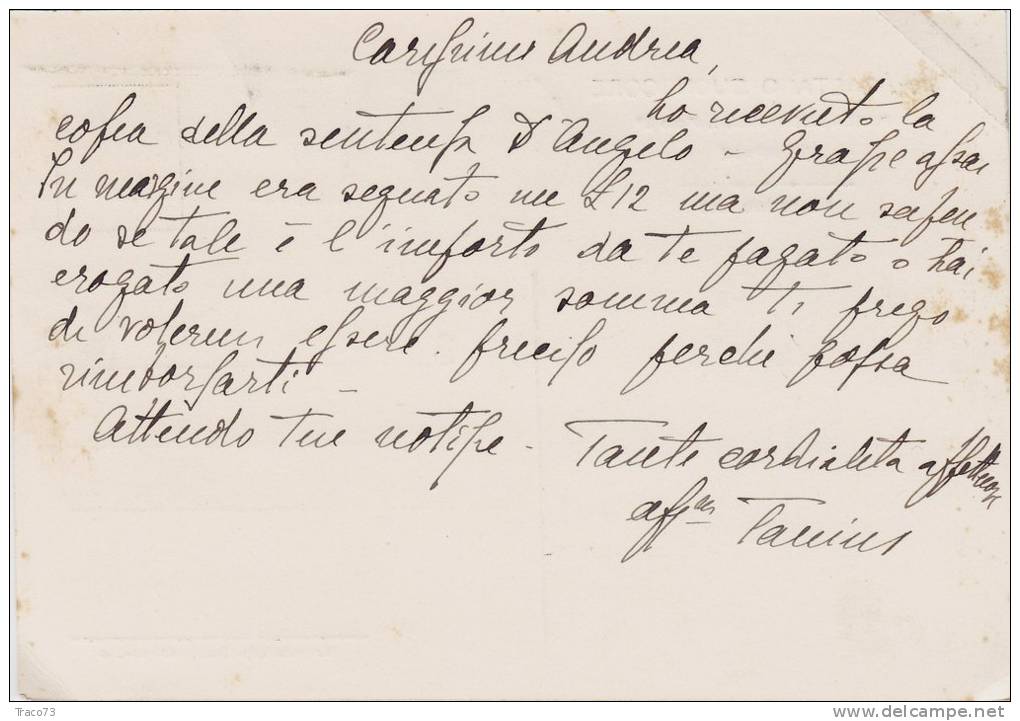 Carissimo Andrea,
ho ricevuto la
copia della sentenza D'Angelo - Grazie assai
In margine era segnato un £12 ma non sapen
do se tale è l'importo da te pagato o hai
erogato una maggior somma ti prego
di volermi essere preciso perchè possa
rimborsarti -
Attendo tue notizie - Tante cordialità affettuose
aff.mo Tanino
Traco73
delcampe.net